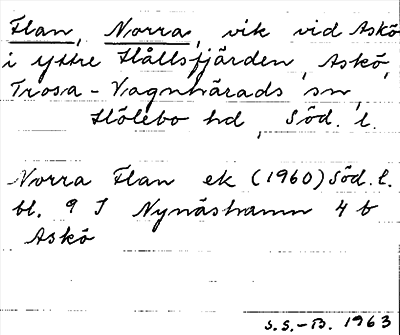 Flan, Norra, vik vid Askö
i yttre Hållsfjärden, Askö,
Trosa-Vagnhärads sn,
Hölebo hd, Söd. l.
Norra Flan ek (1960) Söd. l.
bl. 9 I Nynäshamn 4 b
Askö
S.S.-B. 1963